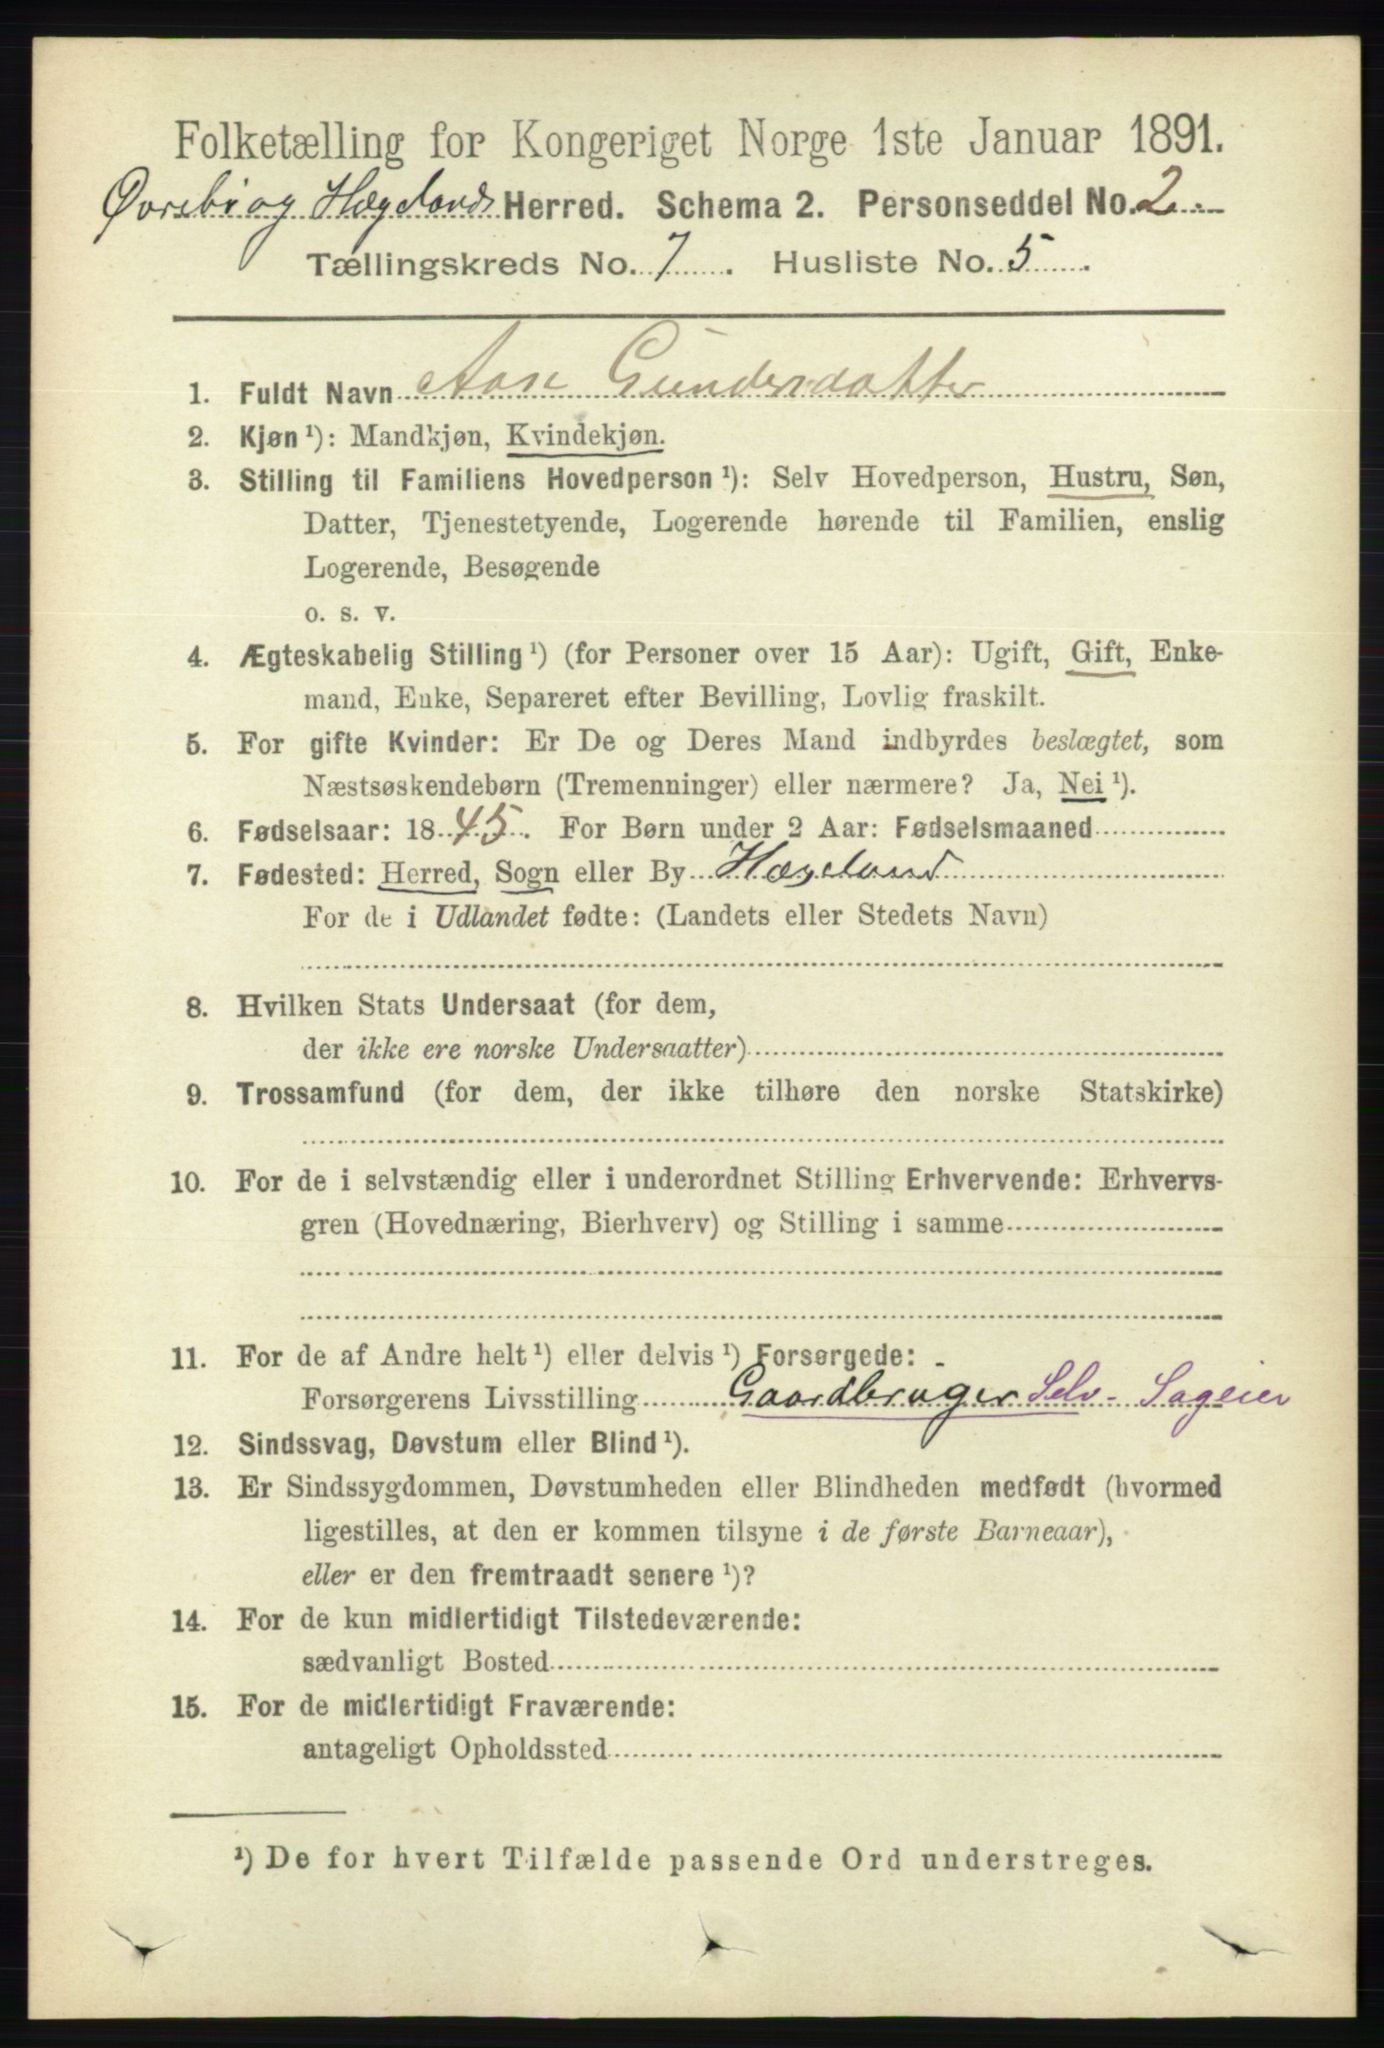 Folketælling for Kongeriget Norge 1ste Januar 1891.
Øvrebø og Hægelands Herred. Schema 2. Personseddel No. 2.
Tællingskreds No. 7. Husliste No. 5.
1. Fuldt Navn Aase Gundersdatter
2. Kjøn ¹): Mandkjøn, Kvindekjøn.
3. Stilling til Familiens Hovedperson ¹): Selv Hovedperson, Hustru, Søn,
Datter, Tjenestetyende, Logerende hørende til Familien, enslig
Logerende, Besøgende
o. s. v.
4. Ægteskabelig Stilling ¹) (for Personer over 15 Aar): Ugift, Gift, Enke-
mand, Enke, Separeret efter Bevilling, Lovlig fraskilt.
5. For gifte Kvinder: Er De og Deres Mand indbyrdes beslægtet, som
Næstsøskendebørn (Tremenninger) eller nærmere? Ja, Nei ¹).
6. Fødselsaar: 1845. For Børn under 2 Aar: Fødselsmaaned
7. Fødested: Herred, Sogn eller By Hægeland
For de i Udlandet fødte: (Landets eller Stedets Navn)
8. Hvilken Stats Undersaat (for dem,
der ikke ere norske Undersaatter)
9. Trossamfund (for dem, der ikke tilhøre den norske Statskirke)
10. For de i selvstændig eller i underordnet Stilling Erhvervende: Erhvervs-
gren (Hovednæring, Bierhverv) og Stilling i samme
11. For de af Andre helt ¹) eller delvis ¹) Forsørgede:
Forsørgerens Livsstilling Gaardbruger Selv- Sageier
12. Sindssvag, Døvstum eller Blind ¹).
13. Er Sindssygdommen, Døvstumheden eller Blindheden medfødt (hvormed
ligestilles, at den er kommen tilsyne i de første Barneaar),
eller er den fremtraadt senere ¹)?
14. For de kun midlertidigt Tilstedeværende:
sædvanligt Bosted
15. For de midlertidigt Fraværende:
antageligt Opholdssted
¹) De for hvert Tilfælde passende Ord understreges.